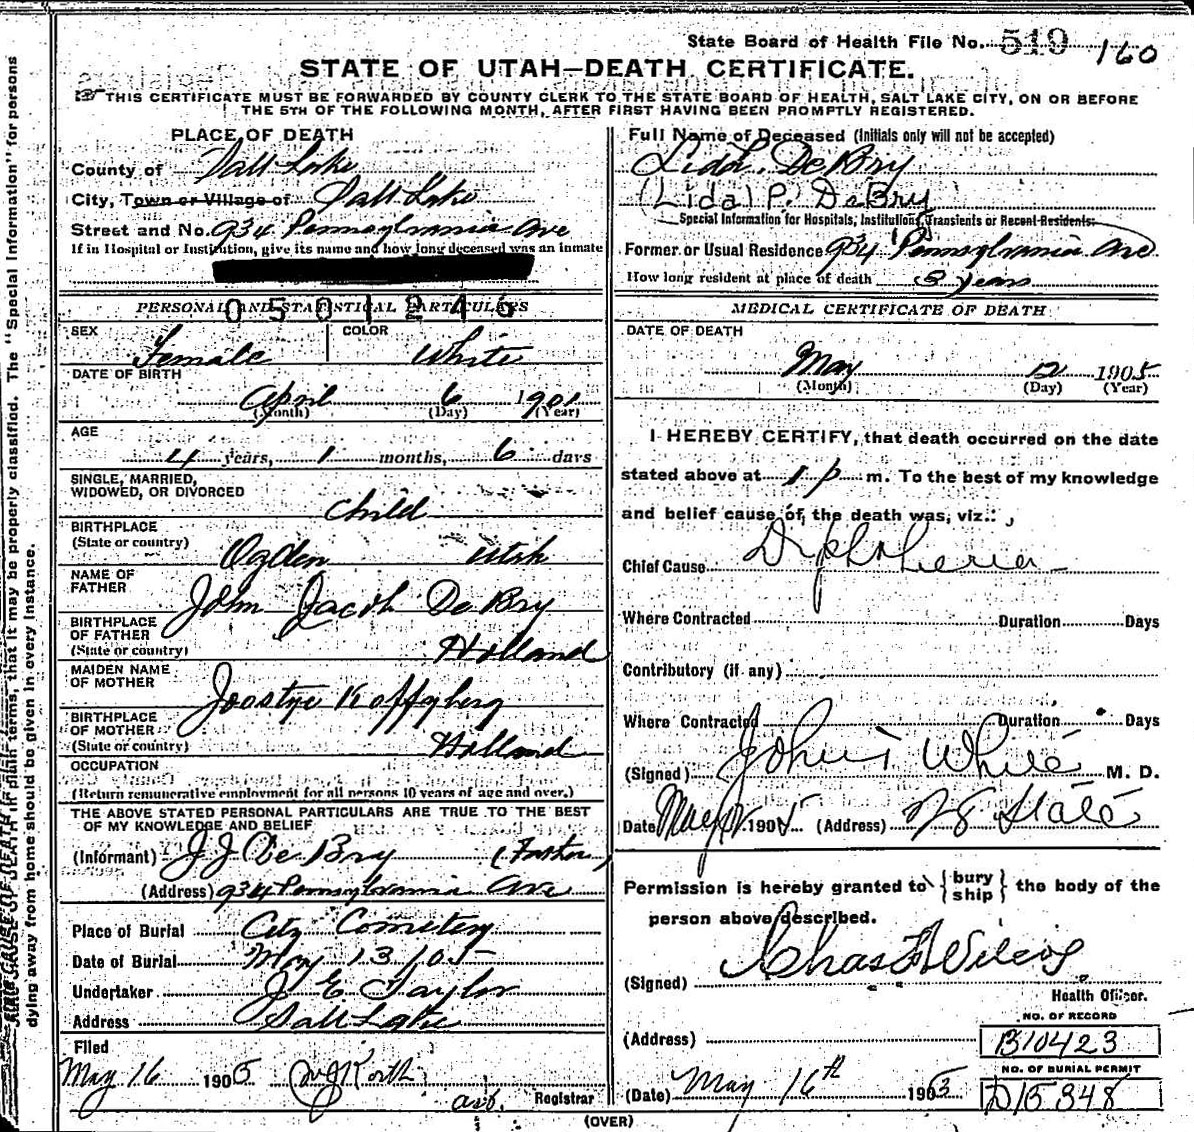 State Board of Health File No. 519 160
STATE OF UTAH—DEATH CERTIFICATE.
THIS CERTIFICATE MUST BE FORWARDED BY COUNTY CLERK TO THE STATE BOARD OF HEALTH, SALT LAKE CITY, ON OR BEFORE
THE 5TH OF THE FOLLOWING MONTH, AFTER FIRST HAVING BEEN PROMPTLY REGISTERED.
PLACE OF DEATH
County of Salt Lake
City, Town or Village of Salt Lake
Street and No. 934 Pennsylvania Ave
If in Hospital or Institution, give its name and how long deceased was an inmate
0501246
PERSONAL AND STATISTICAL PARTICULARS
SEX Female COLOR White
DATE OF BIRTH
April 6 1901
(Month) (Day) (Year)
AGE
4 years, 1 months, 6 days
SINGLE, MARRIED,
WIDOWED, OR DIVORCED
Child
BIRTHPLACE
(State or country) Ogden Utah
NAME OF
FATHER John Jacob De Bry
BIRTHPLACE
OF FATHER
(State or country) Holland
MAIDEN NAME
OF MOTHER Joostje
BIRTHPLACE
OF MOTHER
(State or country) Holland
OCCUPATION
(Return remunerative employment for all persons 10 years of age and over.)
THE ABOVE STATED PERSONAL PARTICULARS ARE TRUE TO THE BEST
OF MY KNOWLEDGE AND BELIEF
(Informant) J J De Bry (Father)
(Address) 934 Pennsylvania Ave
Place of Burial City Cemetery
Date of Burial May 13 / 05
Undertaker J E Taylor
Address Salt Lake
Filed
May 16 1905
Registrar
Full Name of Deceased (Initials only will not be accepted)
Lida P. De Bry
(Lida P. DeBry
Special Information for Hospitals, Institutions, Transients or Recent Residents.
Former or Usual Residence 934 Pennsylvania Ave.
How long resident at place of death 3 years
MEDICAL CERTIFICATE OF DEATH
DATE OF DEATH
May 12 1905
(Month) (Day) (Year)
I HEREBY CERTIFY, that death occurred on the date
stated above at 1 p m. To the best of my knowledge
and belief cause of the death was, viz.:
Chief Cause Diphtheria
Where Contracted Duration Days
Contributory (if any)
Where Contracted Duration Days
(Signed) John White M. D.
Date May 1905 (Address) State
Permission is hereby granted to { bury
ship } the body of the
person above described.
(Signed) Chas F Wilcox
Health Officer.
(Address)
NO. OF RECORD
B10423
NO. OF BURIAL PERMIT
(Date) May 16th 1905 D15348
(OVER)
dying away from home should be given in every instance.